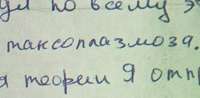 по всему
таксоплазмоза.
я теории Я отпр